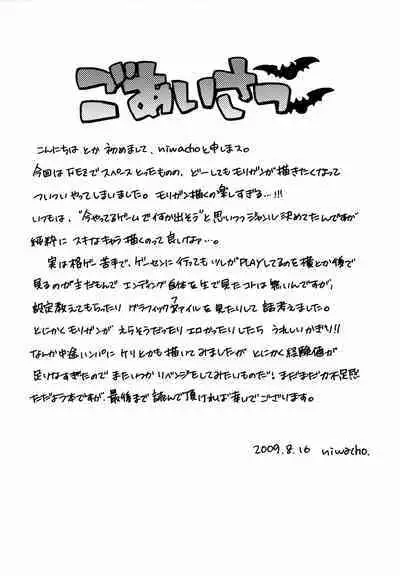 ごあいさつ
こんにちはとか初めまして、niwachoと申しまス。
今回はNEZでスペースとったものの、どーしてもモリガンが描きたくなって
ついついやってしまいました。モリガン描くの楽しすぎる…!!!
いつもは、"今やってるゲームで何か出そう"と思いつつジャンル決めてたんですが
純粋にスキなキャラ描くのって良いなァ…。
実は格ゲー苦手で、ゲーセンに行ってもツレがPLAYしてるのを横とか後で
見るのが主だもんで エンディング自体を生で見たコトは無いんですが、
設定教えてもらったり グラフィックファイルを見たりして話考えました。
とにかくモリガンが えらそうだったり エロかったりしたら うれしいかぎり!!
なんか中途ハンパに ケリとかも描いてみましたが とにかく経験値が
足りなすぎたので またいつか リベンジをしてみたいものだ! まだまだ力不足感
ただよう本ですが、最後まで読んで頂ければ幸いでございます。
2009.8.16 niwacho.